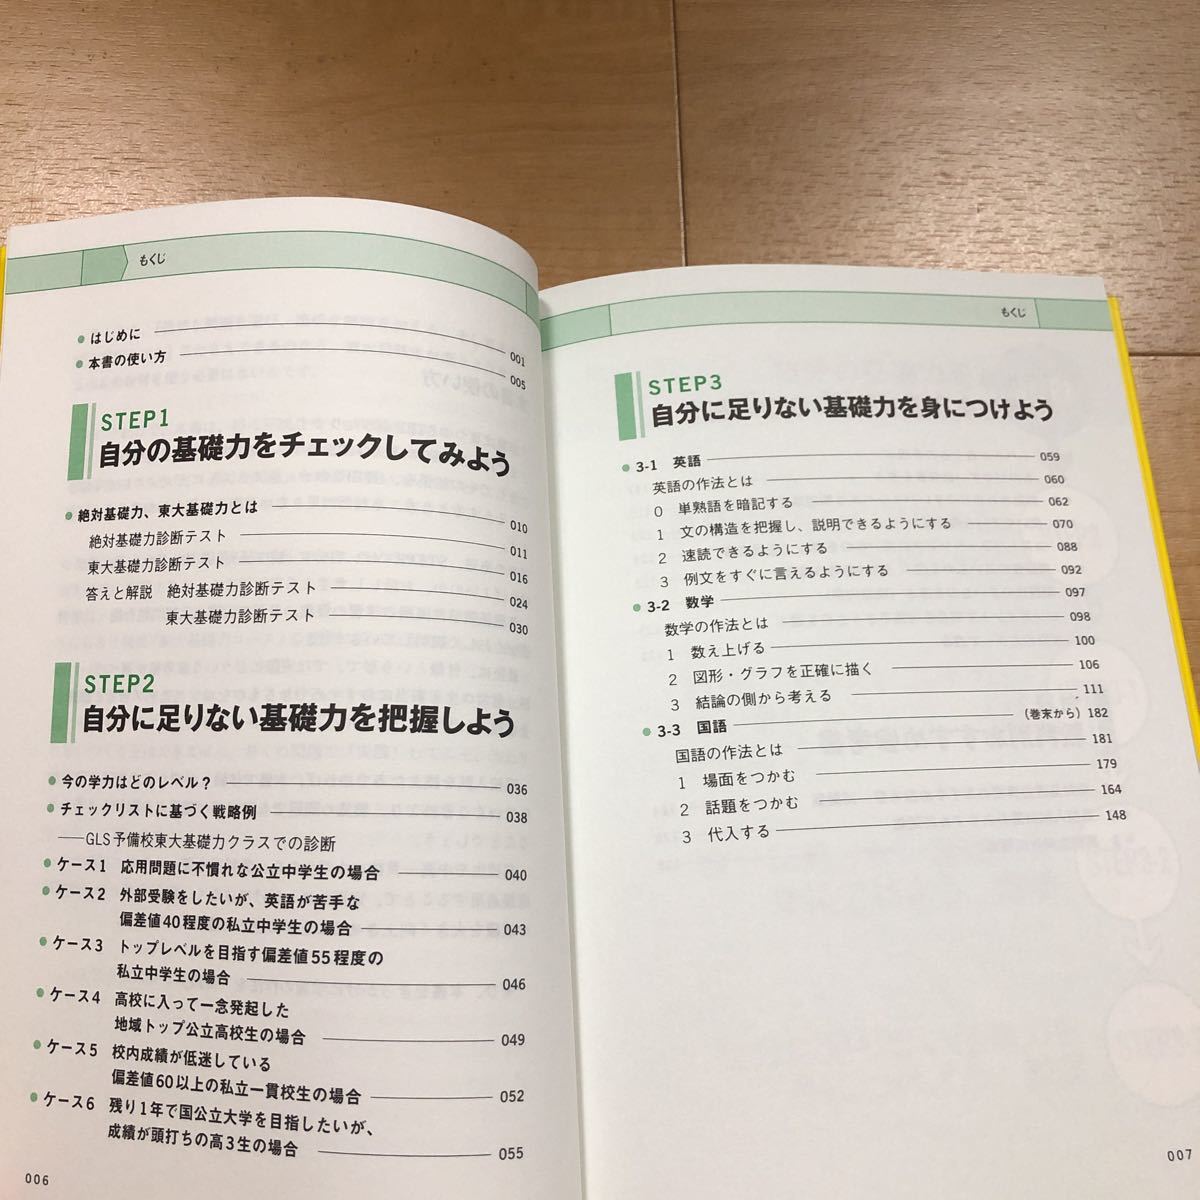 もくじ
はじめに 001
本書の使い方 005
STEP1
自分の基礎力をチェックしてみよう
絶対基礎力、東大基礎力とは 010
絶対基礎力診断テスト 011
東大基礎力診断テスト 016
答えと解説 絶対基礎力診断テスト 024
東大基礎力診断テスト 030
STEP2
自分に足りない基礎力を把握しよう
今の学力はどのレベル? 036
チェックリストに基づく戦略例 038
――GLS予備校東大基礎力クラスでの診断
ケース1 応用問題に不慣れな公立中学生の場合 040
ケース2 外部受験をしたいが、英語が苦手な
偏差値40程度の私立中学生の場合 043
ケース3 トップレベルを目指す偏差値55程度の
私立中学生の場合 046
ケース4 高校に入って一念発起した
地域トップ公立高校生の場合 049
ケース5 校内成績が低迷している
偏差値60以上の私立一貫校生の場合 052
ケース6 残り1年で国公立大学を目指したいが、
成績が頭打ちの高3生の場合 055
006
もくじ
STEP3
自分に足りない基礎力を身につけよう
3-1 英語 059
英語の作法とは 060
0 単熟語を暗記する 062
1 文の構造を把握し、説明できるようにする 070
2 速読できるようにする 088
3 例文をすぐに言えるようにする 092
3-2 数学 097
数学の作法とは 098
1 数え上げる 100
2 図形・グラフを正確に描く 106
3 結論の側から考える 111
3-3 国語 (巻末から) 182
国語の作法とは 181
1 場面をつかむ 179
2 話題をつかむ 164
3 代入する 148
007